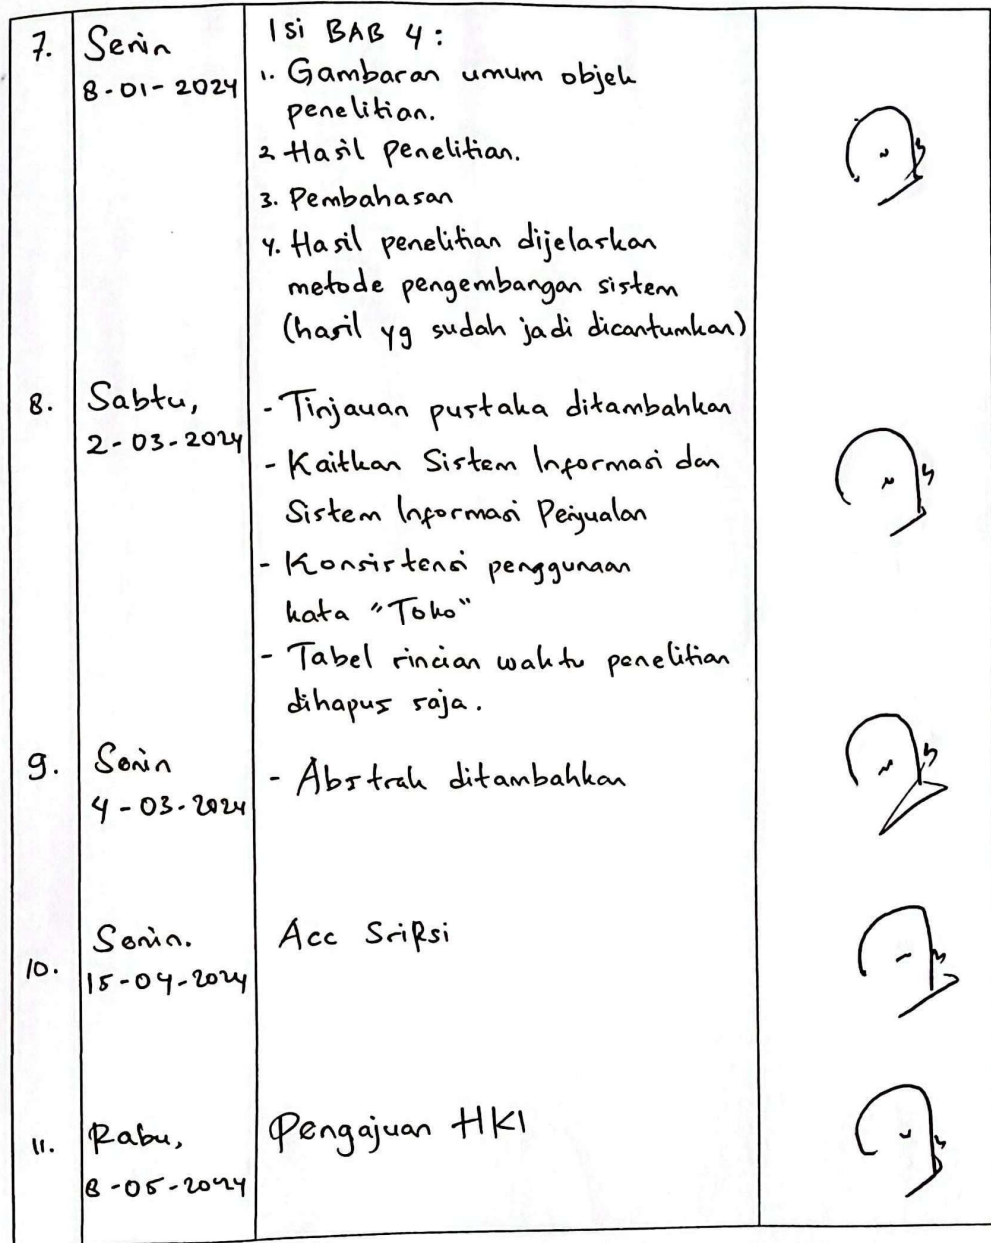 7. Senin
8-01-2024
Isi BAB 4:
1. Gambaran umum objek
penelitian.
2. Hasil penelitian.
3. Pembahasan
4. Hasil penelitian dijelaskan
metode pengembangan sistem
(hasil yg sudah jadi dicantumkan)
8. Sabtu,
2-03-2024
- Tinjauan pustaka ditambahkan
- Kaitkan Sistem Informasi dan
Sistem Informasi Penjualan
- Konsistensi penggunaan
kata "Toko"
- Tabel rincian waktu penelitian
dihapus saja.
9. Senin
4-03-2024
- Abstrak ditambahkan
10. Senin.
15-04-2024
Acc Sripsi
11. Rabu,
8-05-2024
Pengajuan HKI